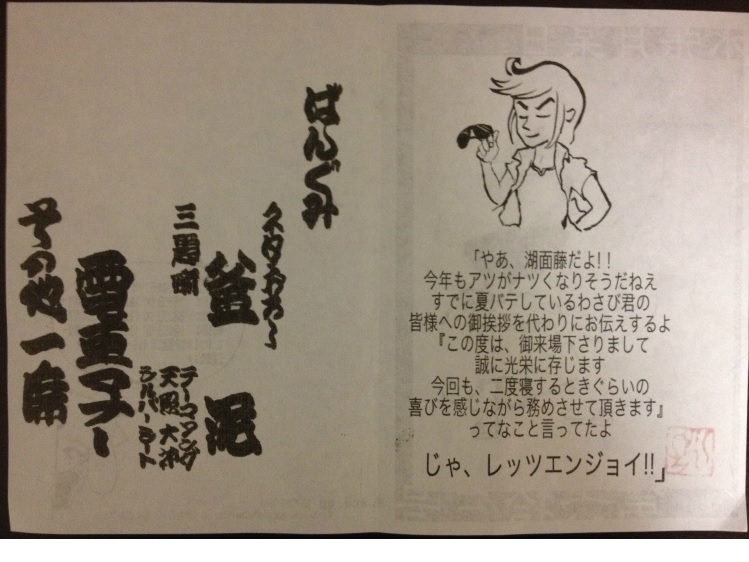 「やあ、湖面藤だよ！！
今年もアツがナツくなりそうだねえ
すでに夏バテしているわさび君の
皆様への御挨拶を代わりにお伝えするよ
『この度は、御来場下さりまして
誠に光栄に存じます
今回も、二度寝するときぐらいの
喜びを感じながら務めさせて頂きます』
ってなこと言ってたよ
じゃ、レッツエンジョイ!!」
ばんぐみ
ネタおろし
釜泥
三題噺
テーマソング
天照大神
シルバーシート
電車マナー
その他一席